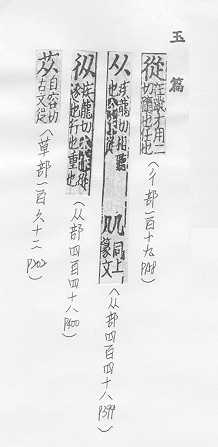 玉篇
從 在蹤才用二切隨也任也 (彳部一百十九 P48)
从 疾龍切相聽也今作從 同上篆文 (从部四百四十八 P399)
疾龍切 逐也行也重也 (从部四百四十八 P400)
自容切古文從 (草部一百六十二 P202)